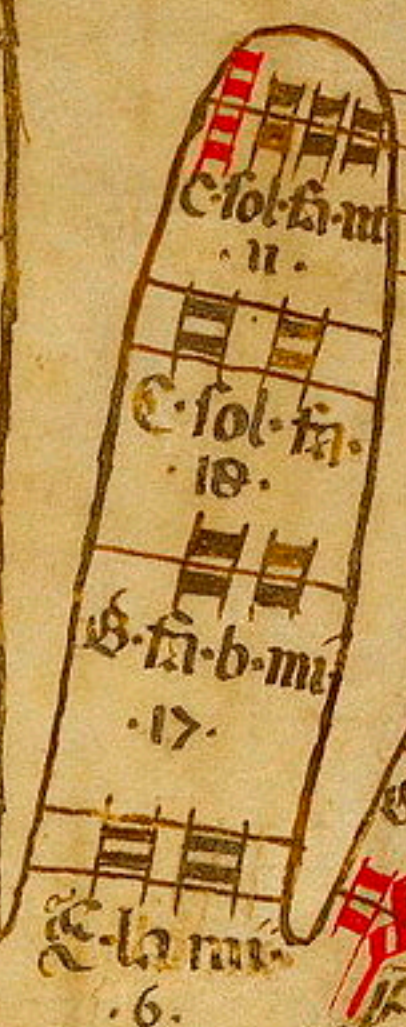 C·sol·fa·ut
·11·
C·sol·fa·
·18·
B·fa·b·mi·
·17·
E·la mi·
·6·